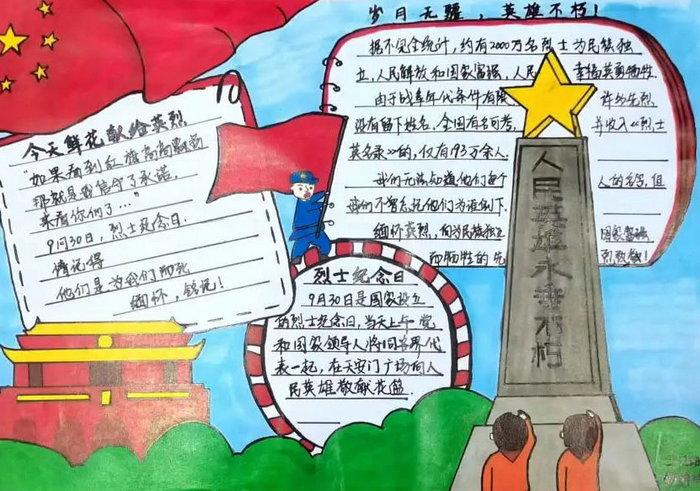 岁月无疆，英雄不朽！
据不完全统计，约有2000万名烈士为民族独
立，人民解放和国家富强，人民 幸福英勇牺牲
由于战争年代条件有限 许多先烈
没有留下姓名，全国有名可考， 并收入《烈士
英名录》的，仅有193万余人。
我们无法知道他们每个 人的名字，但
我们不曾忘记他们为谁倒下
缅怀英烈，向为民族独立 国家富强
而牺牲的先 烈致敬！
今天鲜花献给英烈
"如果看到红旗高高飘扬
那就是我信守了承诺，
来看你们了…"
9月30日，烈士纪念日
请记得
他们是为我们而死
缅怀，铭记！
烈士纪念日
9月30日是国家设立
的烈士纪念日，当天上午党
和国家领导人将同各界代
表一起，在天安门广场向人
民英雄敬献花篮
人民英雄永垂不朽